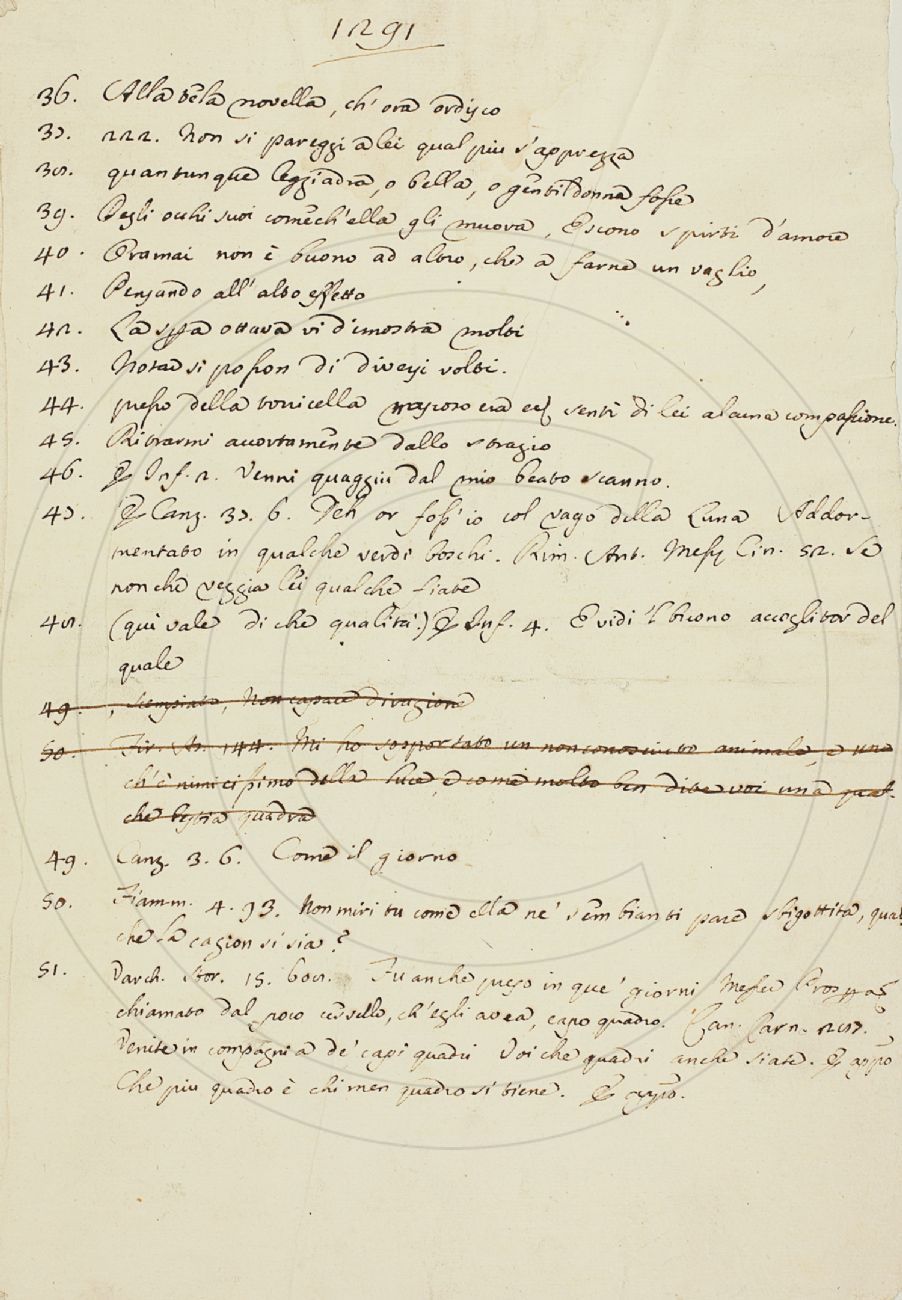 1291
36. Alla bella novella, ch'ora ordisco
37. 222. Non si pareggi a lei qual piu s'apprezza
38. quantunque leggiadra, o bella, o gentildonna fosse
39. Degli occhi suoi comech'ella gli muova, Escono spirti d'amore
40. Oramai non è buono ad altro, che a farne un vaglio,
41. Pensando all'alto effetto
42. La ottava vi dimostra molti
43. Notansi posson di diversi volti.
44. presso della torricella nascoso era sentì di lei alcuna compassione.
45. Ritrarmi accortamente dallo strazio
46. Inf. 2. Venni quaggiù dal mio beato scanno.
47. Canz. 37. 6. Deh or foss'io col vago della Luna Addor-
mentato in qualche verdi boschi. Rim. Ant. Cin. 52. Se
non che veggia lei qualche fiate
48. (qui vale di che qualità) Inf. 4. E vidi 'l buono accoglitor del
quale
49. , scempiato, Non capace di ragione
50. Fir. As. 144. Mi ho sopportato un non conosciuto animale, e uno
ch'è nimicissimo della luce, e come molto ben dite voi una qual-
che bestia quadra
49. Canz. 3. 6. Come il giorno
50. Fiamm. 4. 93. Non miri tu come ella ne' sembianti pare sbigottita, qual
che la cagion si sia?
51. Varch. Stor. 15. 608. Fu anche preso in que' giorni Messer
chiamato dal poco cervello, ch'egli avea, capo quadro. Can. Carn. 287.
Venite in compagnia de' capi quadri Voi che quadri anche siate. appo
Che piu quadro è chi men quadro si tiene. appo.